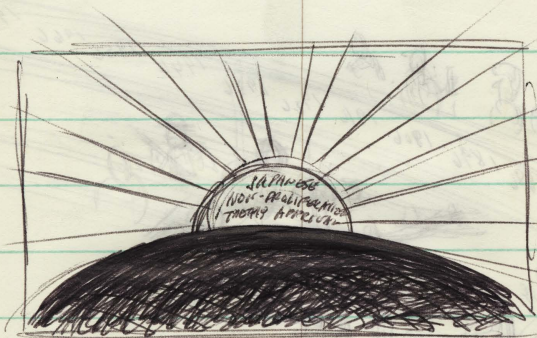 JAPANESE
NON-PROLIFERATION
TREATY APPROVAL